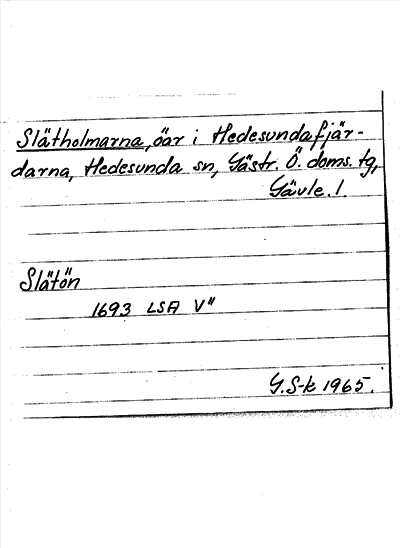 Slätholmarna, öar i Hedesundafjär-
darna, Hedesunda sn, Gästr. Ö. doms. tg,
Gävle. l.
Slätön
1693 LSA V"
G. S-k 1965.